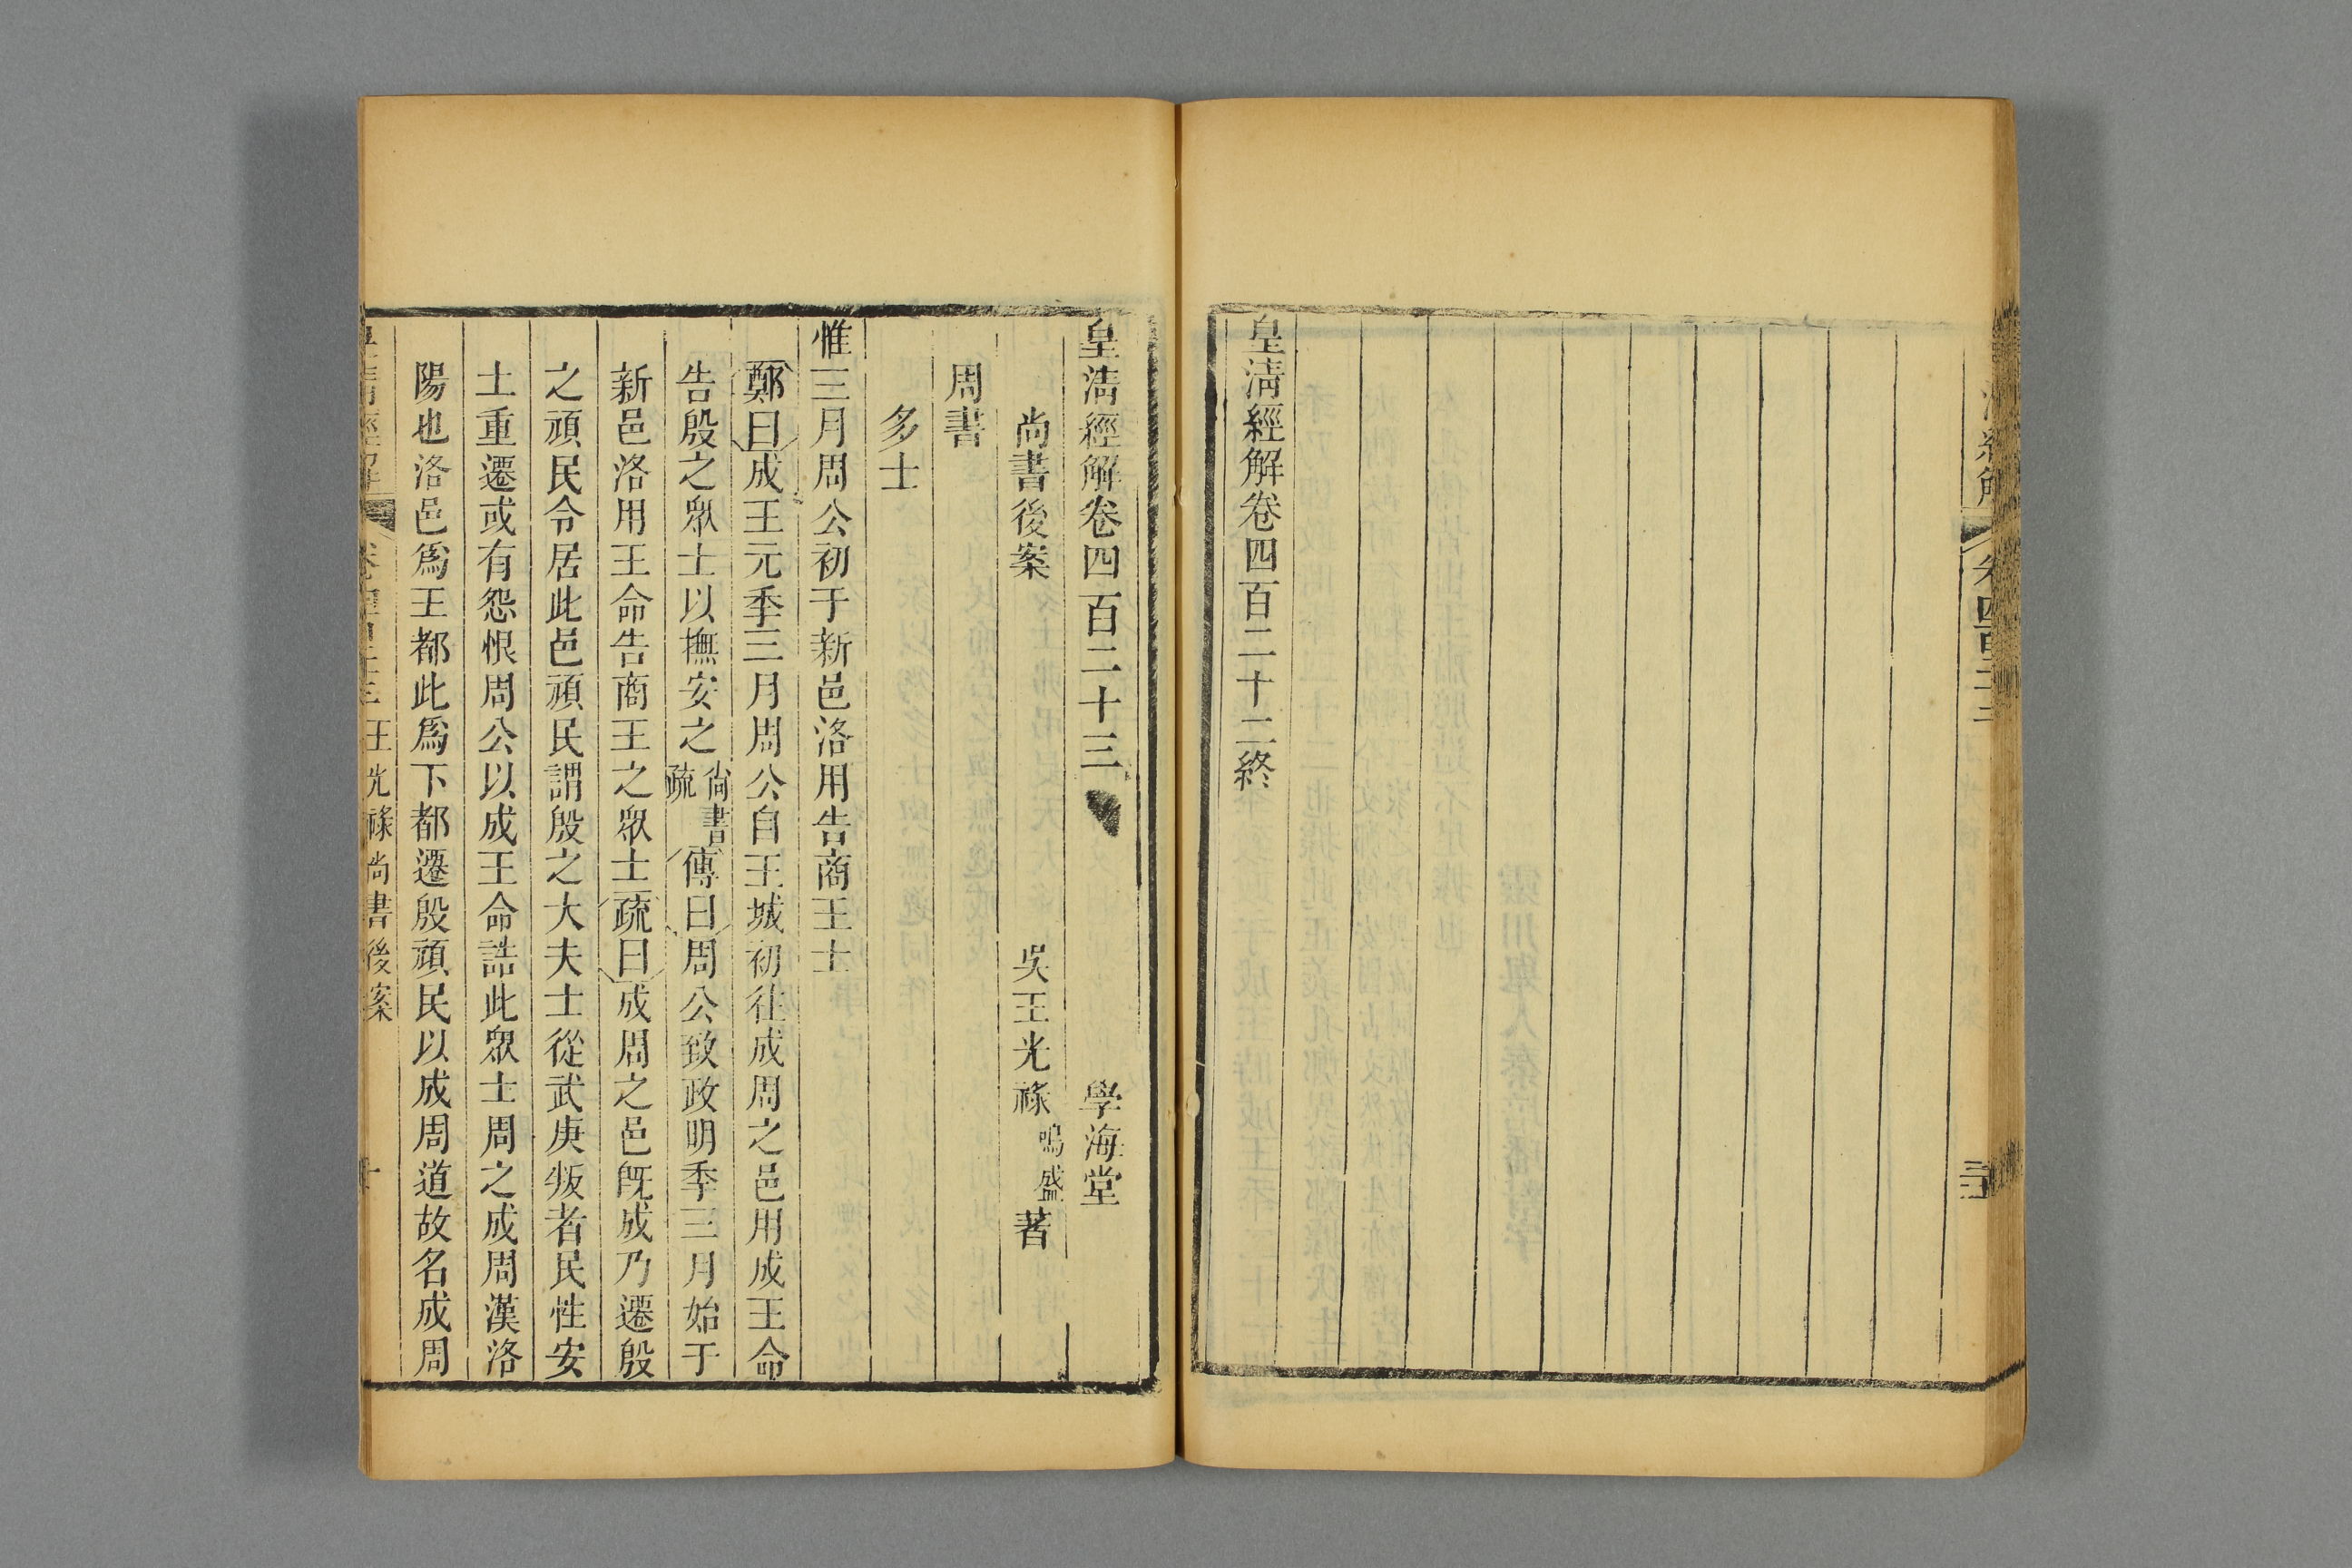 皇淸經解卷四百二十二終
皇淸經解卷四百二十三 學海堂
尚書後案 吳王光祿鳴盛著
周書
多士
惟三月周公初于新邑洛用告商王士
鄭曰成王元季三月周公自王城初往成周之邑用成王命
告殷之眾士以撫安之尚書疏傳曰周公致政明季三月始于
新邑洛用王命告商王之眾士疏曰成周之邑旣成乃遷殷
之頑民令居此邑頑民謂殷之大夫士從武庚叛者民性安
土重遷或有怨恨周公以成王命誥此眾士周之成周漢洛
陽也洛邑爲王都此爲下都遷殷頑民以成周道故名成周
王光祿尚書後案